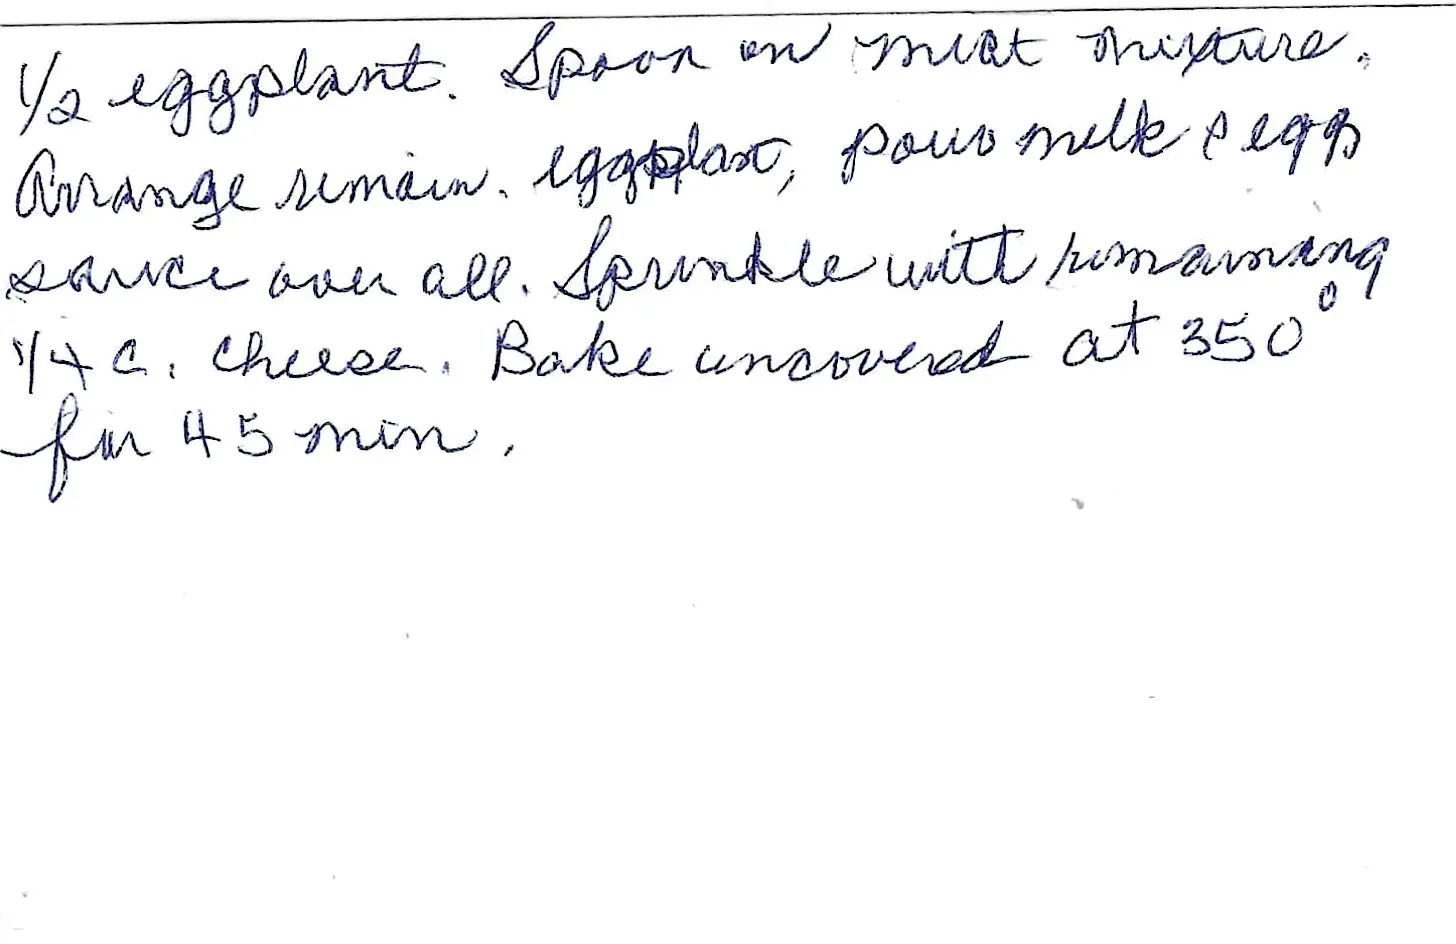 1/2 eggplant. Spoon on meat mixture.
Arrange remain. eggplant, pour milk & egg
sauce over all. Sprinkle with remaining
1/4 c. cheese. Bake uncovered at 350°
for 45 min.